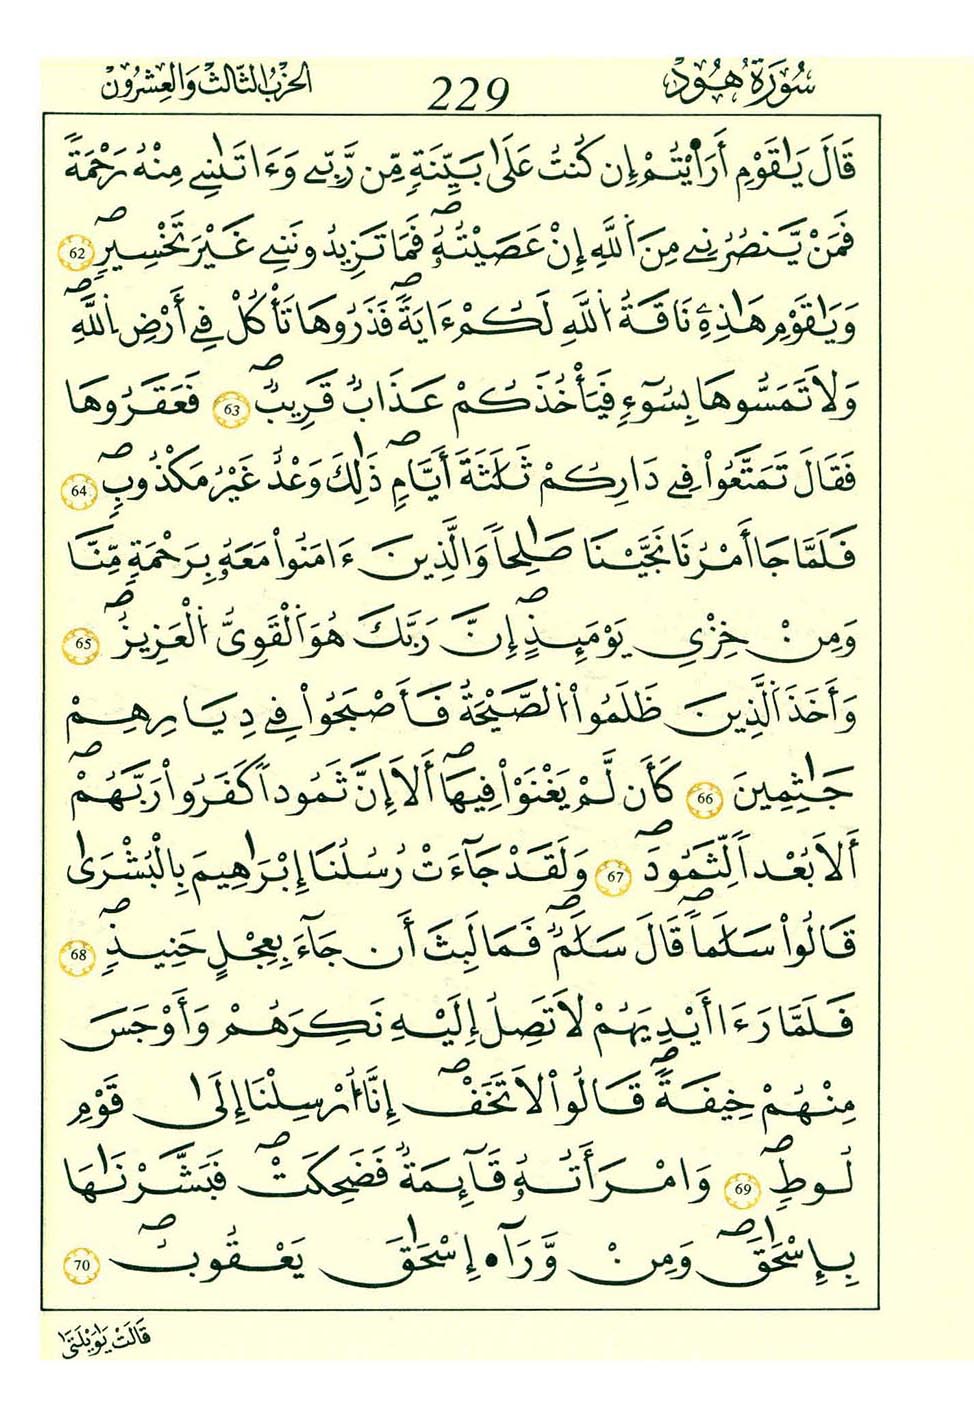 سُورَةُ هُودٍ
229
الحِزْبُ الثَّالِثُ وَالعِشْرُونَ
قَالَ يَٰقَوْمِ أَرَٰٓيْتُمْ إِن كُنتُ عَلَىٰ بَيِّنَةٍ مِّن رَّبِّے وَءَاتَىٰنِے مِنْهُ رَحْمَةً
فَمَنْ يَّنصُرُنِے مِنَ اَ۬للَّهِ إِنْ عَصَيْتُهُۥۖ فَمَا تَزِيدُونَنِے غَيْرَ تَخْسِيرٍۖ 62
وَيَٰقَوْمِ هَٰذِهِۦ نَاقَةُ اُ۬للَّهِ لَكُمْ ءَايَةٗۖ فَذَرُوهَا تَأْكُلْ فِےٓ أَرْضِ اِ۬للَّهِۖ
وَلَا تَمَسُّوهَا بِسُوٓءٖ فَيَأْخُذَكُمْ عَذَابٞ قَرِيبٞۖ 63 فَعَقَرُوهَا
فَقَالَ تَمَتَّعُواْ فِے دَارِكُمْ ثَلَٰثَةَ أَيَّامٖۖ ذَٰلِكَ وَعْدٌ غَيْرُ مَكْذُوبٖۖ 64
فَلَمَّا جَا أَمْرُنَا نَجَّيْنَا صَٰلِحاٗ وَالَّذِينَ ءَامَنُواْ مَعَهُۥ بِرَحْمَةٖ مِّنَّا
وَمِنْ خِزْيِ يَوْمِئِذٍۖ إِنَّ رَبَّكَ هُوَ اَ۬لْقَوِيُّ اُ۬لْعَزِيزُۖ 65
وَأَخَذَ اَ۬لَّذِينَ ظَلَمُواْ اُ۬لصَّيْحَةُ فَأَصْبَحُواْ فِے دِيَارِهِمْ
جَٰثِمِينَ 66 كَأَن لَّمْ يَغْنَوْاْ فِيهَاۖ أَلَا إِنَّ ثَمُوداٗ كَفَرُواْ رَبَّهُمْۖ
أَلَا بُعْداٗ لِّثَمُودَۖ 67 وَلَقَدْ جَآءَتْ رُسُلُنَا إِبْرَٰهِيمَ بِالْبُشْر۪ىٰ
قَالُواْ سَلَٰماٗۖ قَالَ سَلَٰمٞۖ فَمَا لَبِثَ أَن جَآءَ بِعِجْلٍ حَنِيذٖۖ 68
فَلَمَّا رَءَا أَيْدِيَهُمْ لَا تَصِلُ إِلَيْهِ نَكِرَهُمْ وَأَوْجَسَ
مِنْهُمْ خِيفَةٗۖ قَالُواْ لَا تَخَفْۖ إِنَّا أُرْسِلْنَا إِلَىٰ قَوْمِ
لُوطٖۖ 69 وَامْرَأَتُهُۥ قَآئِمَةٞ فَضَحِكَتْۖ فَبَشَّرْنَٰهَا
بِإِسْحَٰقَۖ وَمِنْ وَّرَآءِ اسْحَٰقَ يَعْقُوبُۖ 70
قَالَتْ يَٰوَيْلَتَىٰ